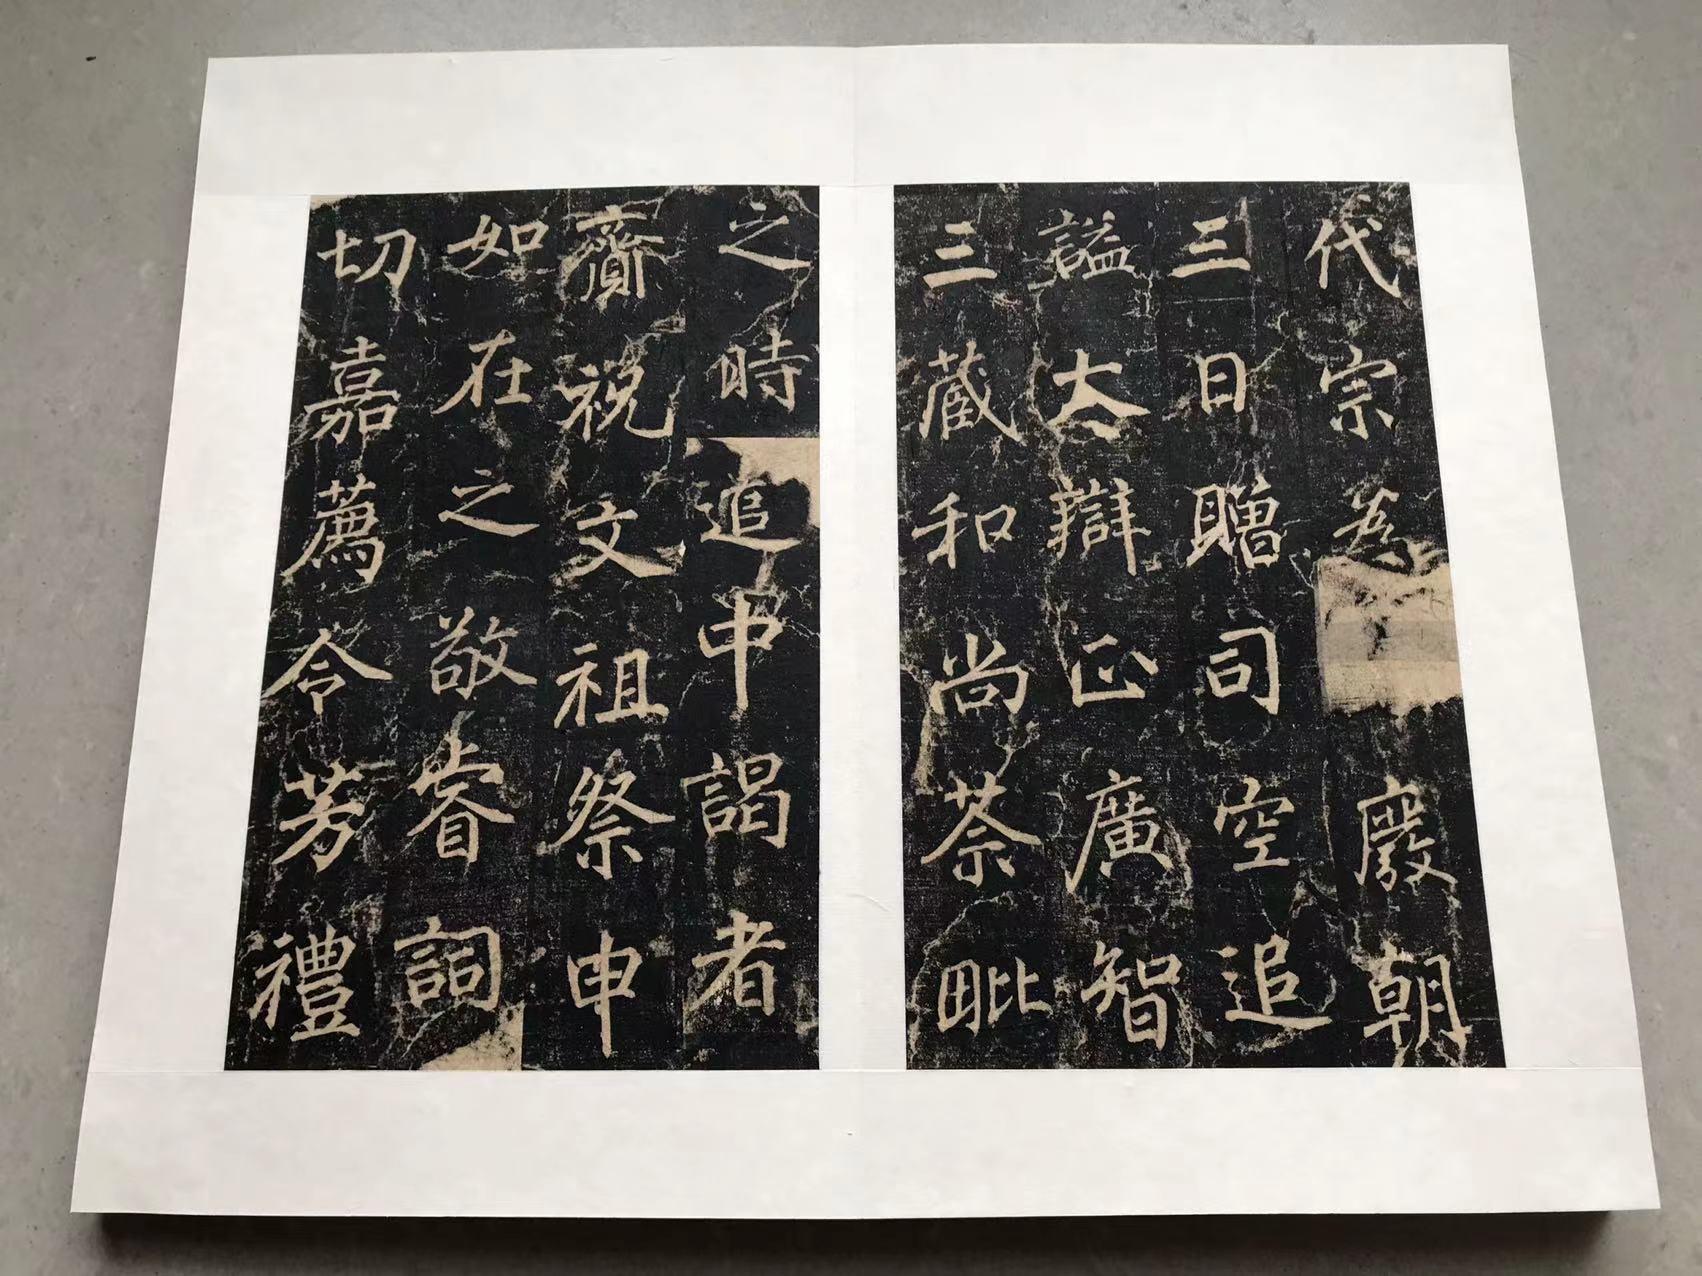 代宗為廢朝
三日贈司空追
諡大辯正廣智
三藏和尚荼毗
之時追中謁者
齎祝文祖祭申
如在之敬睿詞
切嘉薦令芳禮